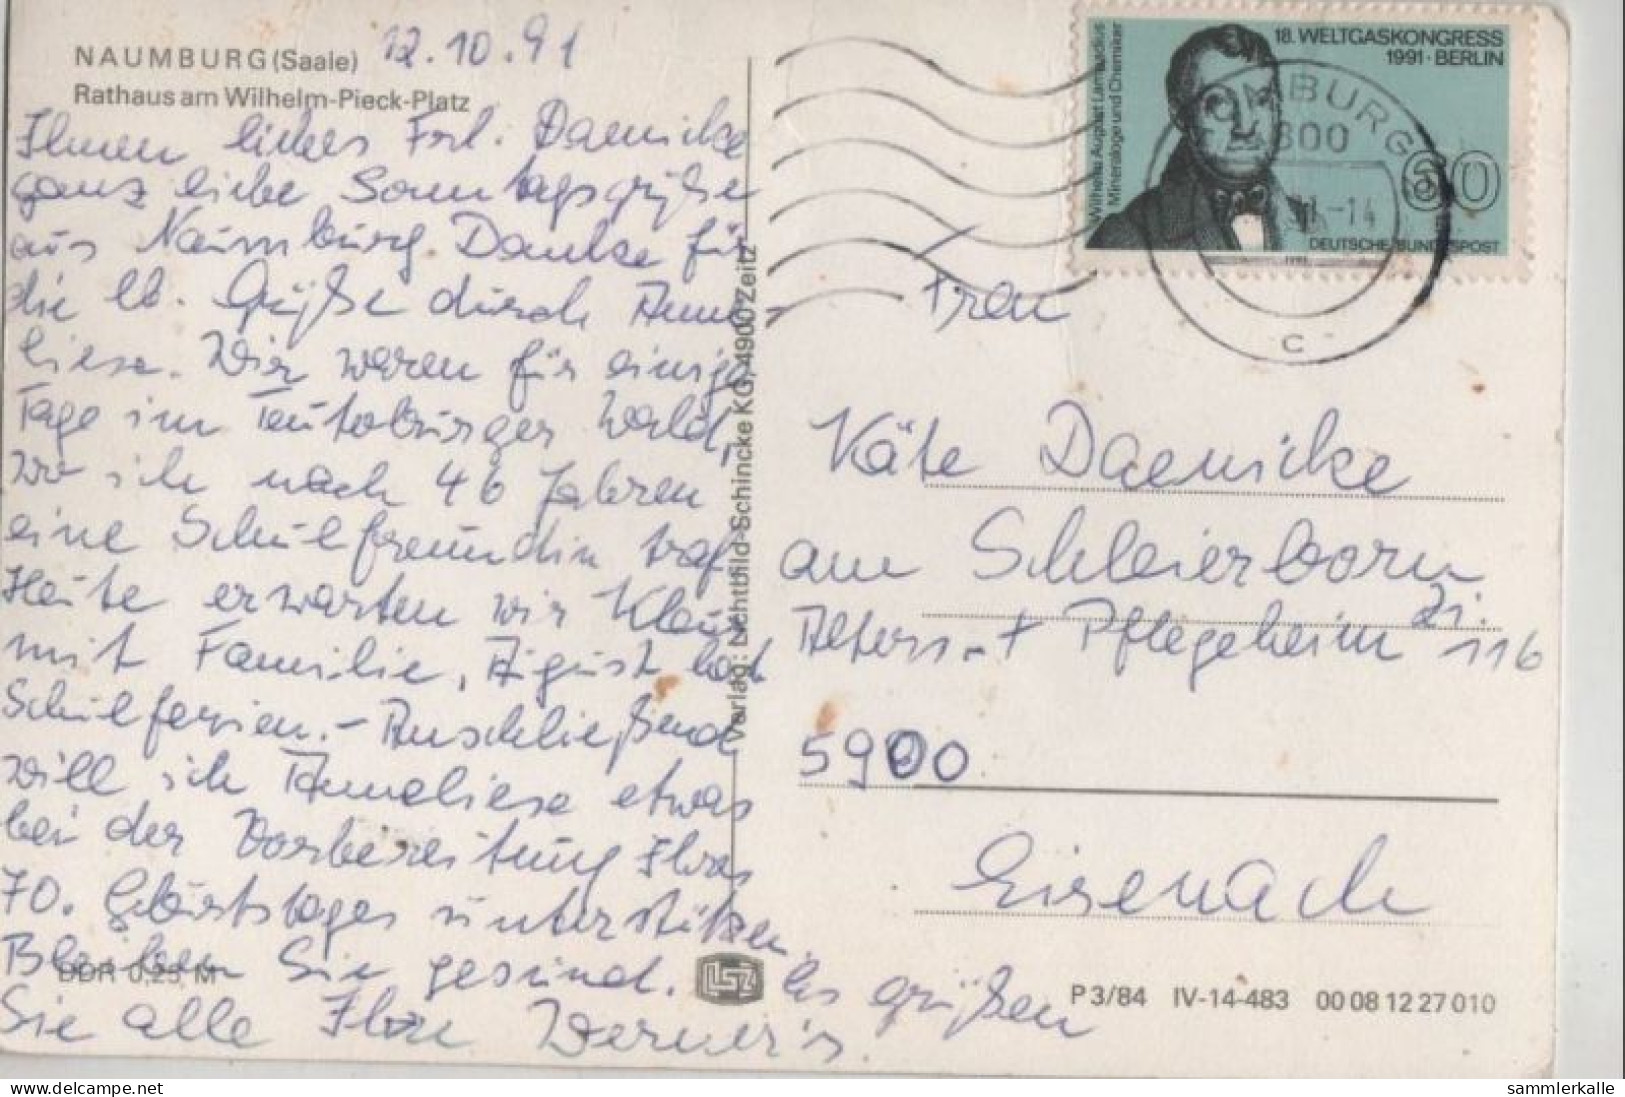 NAUMBURG (Saale) 12.10.91
Rathaus am Wilhelm-Pieck-Platz
Ihnen liebes Frl. Daenicke
ganz liebe Sonntagsgrüße
aus Naumburg. Danke für
die lb. Grüße durch Anne-
liese. Wir waren für einige
Tage im Teutoburger Wald,
wo ich nach 46 Jahren
eine Schulfreundin traf.
Heute erwarten wir Klaus
mit Familie, August hat
Schulferien. - Anschließend
will ich Anneliese etwas
bei der Vorbereitung Ihres
70. Geburtstages unterstützen.
Bleiben Sie gesund. Es grüßen
Sie alle Ihre Werner's.
DDR 0,25 M
Verlag: Lichtbild-Schincke KG, 4900 Zeitz
LSZ
18. WELTGASKONGRESS
1991 · BERLIN
Wilhelm August Lampadius
Mineraloge und Chemiker
60
DEUTSCHE BUNDESPOST
1991
NAUMBURG
-14
c
Frau
Käte Daenicke
am Schleierborn
Alters- + Pflegeheim Zi. 116
5900
Eisenach
P 3/84 IV-14-483 00 08 12 27 010
© www.delcampe.net
sammlerkalle